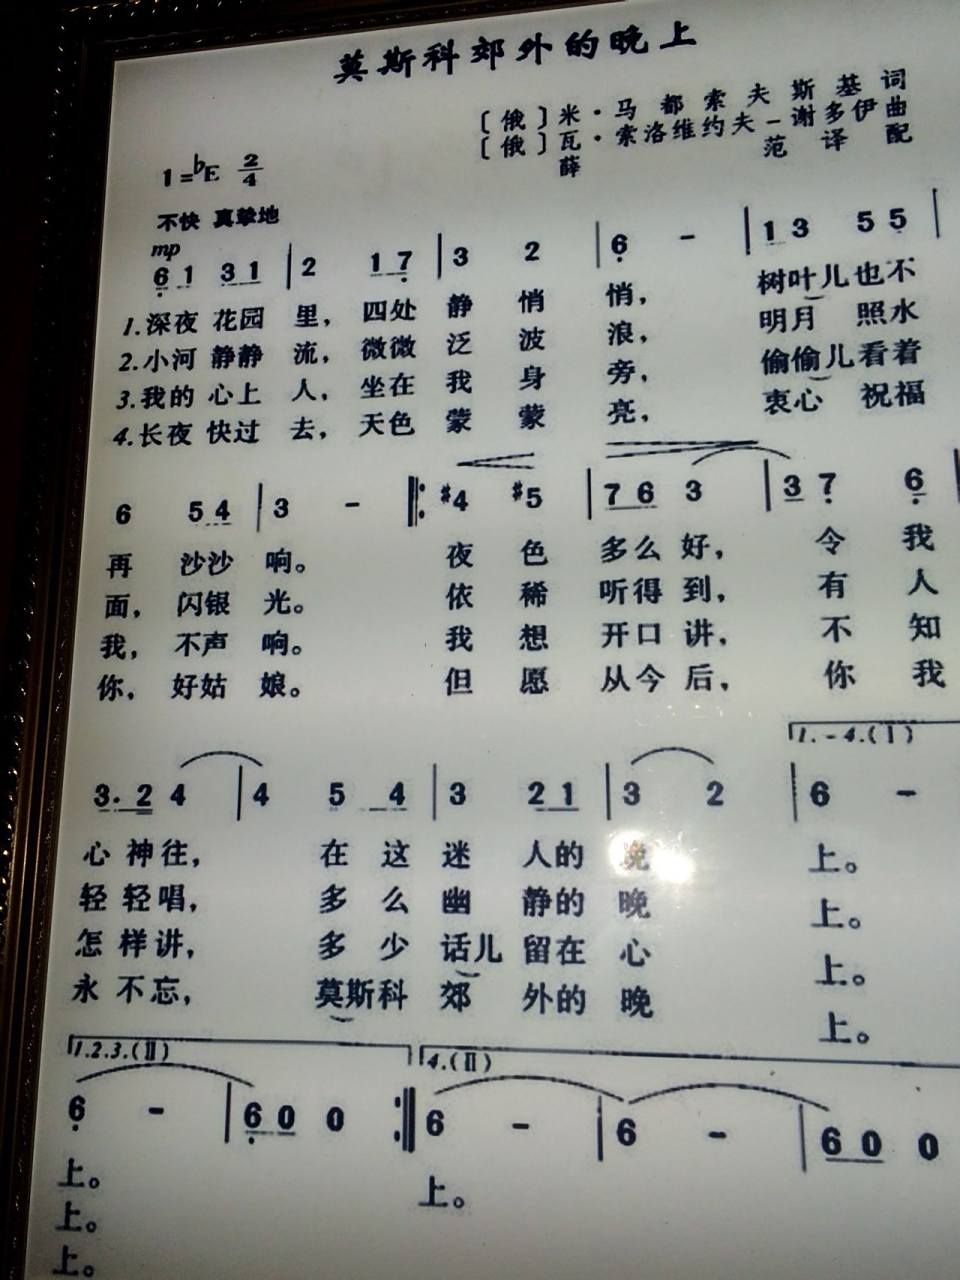 莫斯科郊外的晚上
〔俄〕米·马都索夫斯基词
〔俄〕瓦·索洛维约夫-谢多伊曲
薛 范 译 配
1=♭E 2/4
不快 真挚地
mp
6 1 3 1 | 2 1 7 | 3 2 | 6 - | 1 3 5 5 |
1.深夜 花园 里，四处 静 悄 悄， 树叶儿也不
2.小河 静静 流，微微 泛 波 浪， 明月 照水
3.我的 心上 人，坐在 我 身 旁， 偷偷儿看着
4.长夜 快过 去，天色 蒙 蒙 亮， 衷心 祝福
6 5 4 | 3 - |: #4 #5 | 7 6 3 | 3 7 6 |
再 沙沙 响。 夜 色 多么 好， 令 我
面，闪银 光。 依 稀 听得 到， 有 人
我，不声 响。 我 想 开口 讲， 不 知
你，好姑 娘。 但 愿 从今 后， 你 我
1.-4.(Ⅰ)
3. 2 4 | 4 5 4 | 3 2 1 | 3 2 | 6 -
心 神往， 在 这 迷 人的 晚 上。
轻 轻唱， 多 么 幽 静的 晚 上。
怎 样讲， 多 少 话儿 留在 心 上。
永 不忘， 莫斯科 郊 外的 晚 上。
1.2.3.(Ⅱ) 4.(Ⅱ)
6 - | 6 0 0 :| 6 - | 6 - | 6 0 0
上。 上。
上。
上。